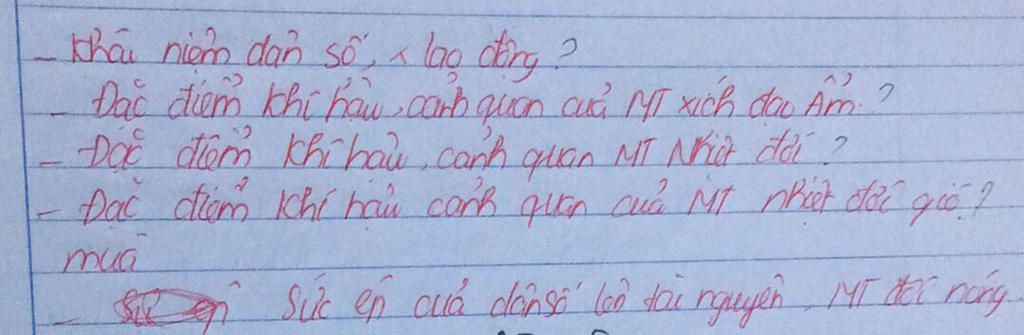 - Khái niệm dân số, lao động?
- Đặc điểm khí hậu, cảnh quan của MT xích đạo Ẩm.?
- Đặc điểm khí hậu, cảnh quan MT Nhiệt đới?
- Đặc điểm khí hậu cảnh quan của MT nhiệt đới gió?
mùa
- Sức ép của dân số tài nguyên, MT đới nóng.